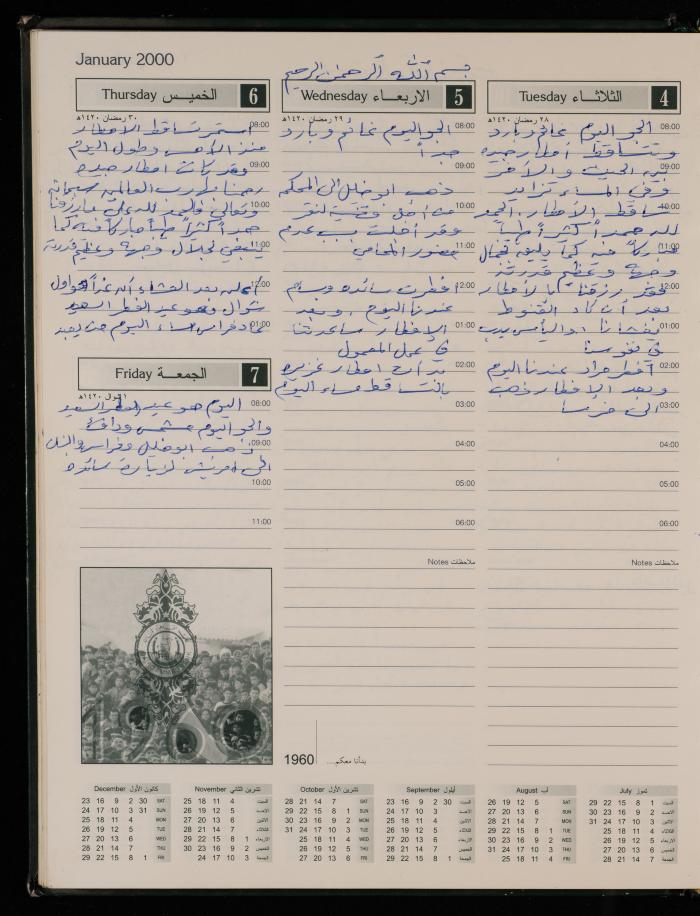 January 2000
بسم الله الرحمن الرحيم
4 الثلاثاء Tuesday
٢٨ رمضان ١٤٢٠هـ
08:00
الجو اليوم غائم وبارد
وتتساقط أمطار جيده
09:00
فيه الحيث والآخر
وفي المساء تزايد
10:00
تساقط الأمطار الحمد
لله حمداً كثيراً طيباً
11:00
مباركاً فيه كما يليق بجمال
وجهه وعظيم قدرته
12:00
فقد رزقنا بالأمطار
بعد أن كاد القنوط
01:00
يغشانا او اليأس يدب
في نفوسنا
02:00
أفطر مراد عندنا اليوم
وبعد الإفطار ذهب
03:00
الى
04:00
05:00
06:00
Notes ملاحظات
5 الاربعاء Wednesday
٢٩ رمضان ١٤٢٠هـ
08:00
الجو اليوم غائم وبارد
جداً
09:00
ذهب ابو خليل الى المحكمه
10:00
من أجل قضية
وقد أجلت بسبب عدم
11:00
حضور المحامي
12:00
افطرت سائده وسام
عندنا اليوم وبعد
01:00
الإفطار ساعدتنا
في عمل المعمول
02:00
بدأت امطار غزيره
بالتساقط مساء اليوم
03:00
04:00
05:00
06:00
Notes ملاحظات
1960
بدأنا معكم...
6 الخميس Thursday
٣٠ رمضان ١٤٢٠هـ
08:00
استمر تساقط الامطار
منذ الأمس وطول اليوم
09:00
وقد كانت امطار جيده
رحمنا بها رب العالمين سبحانه
10:00
وتعالى فالحمد لله على ما رزقنا
حمداً كثيراً طيباً مباركاً فيه كما
11:00
ينبغي لجلال وجهه وعظيم قدرته
12:00
أعلن بعد العشاء أن غداً هو اول
شوال وهو عيد الفطر السعيد
01:00
عاد فراس مساء اليوم من
7 الجمعة Friday
١ شوال ١٤٢٠هـ
08:00
اليوم هو عيد الفطر السعيد
والجو اليوم مشمس ودافئ
09:00
ذهب ابو خليل وفراس
الى لزيارة سائده
10:00
11:00
December كانون الأول
23 16 9 2 30 SAT
24 17 10 3 31 SUN
25 18 11 4 MON
26 19 12 5 TUE
27 20 13 6 WED
28 21 14 7 THU
29 22 15 8 1 FRI
November تشرين الثاني
25 18 11 4 السبت
26 19 12 5 الاحد
27 20 13 6 الاثنين
28 21 14 7 الثلاثاء
29 22 15 8 1 الاربعاء
30 23 16 9 2 الخميس
24 17 10 3 الجمعة
October تشرين الأول
28 21 14 7 SAT
29 22 15 8 1 SUN
30 23 16 9 2 MON
31 24 17 10 3 TUE
25 18 11 4 WED
26 19 12 5 THU
27 20 13 6 FRI
September أيلول
23 16 9 2 30 السبت
24 17 10 3 الاحد
25 18 11 4 الاثنين
26 19 12 5 الثلاثاء
27 20 13 6 الاربعاء
28 21 14 7 الخميس
29 22 15 8 1 الجمعة
August آب
26 19 12 5 SAT
27 20 13 6 SUN
28 21 14 7 MON
29 22 15 8 1 TUE
30 23 16 9 2 WED
31 24 17 10 3 THU
25 18 11 4 FRI
July تموز
29 22 15 8 1 السبت
30 23 16 9 2 الاحد
31 24 17 10 3 الاثنين
25 18 11 4 الثلاثاء
26 19 12 5 الاربعاء
27 20 13 6 الخميس
28 21 14 7 الجمعة